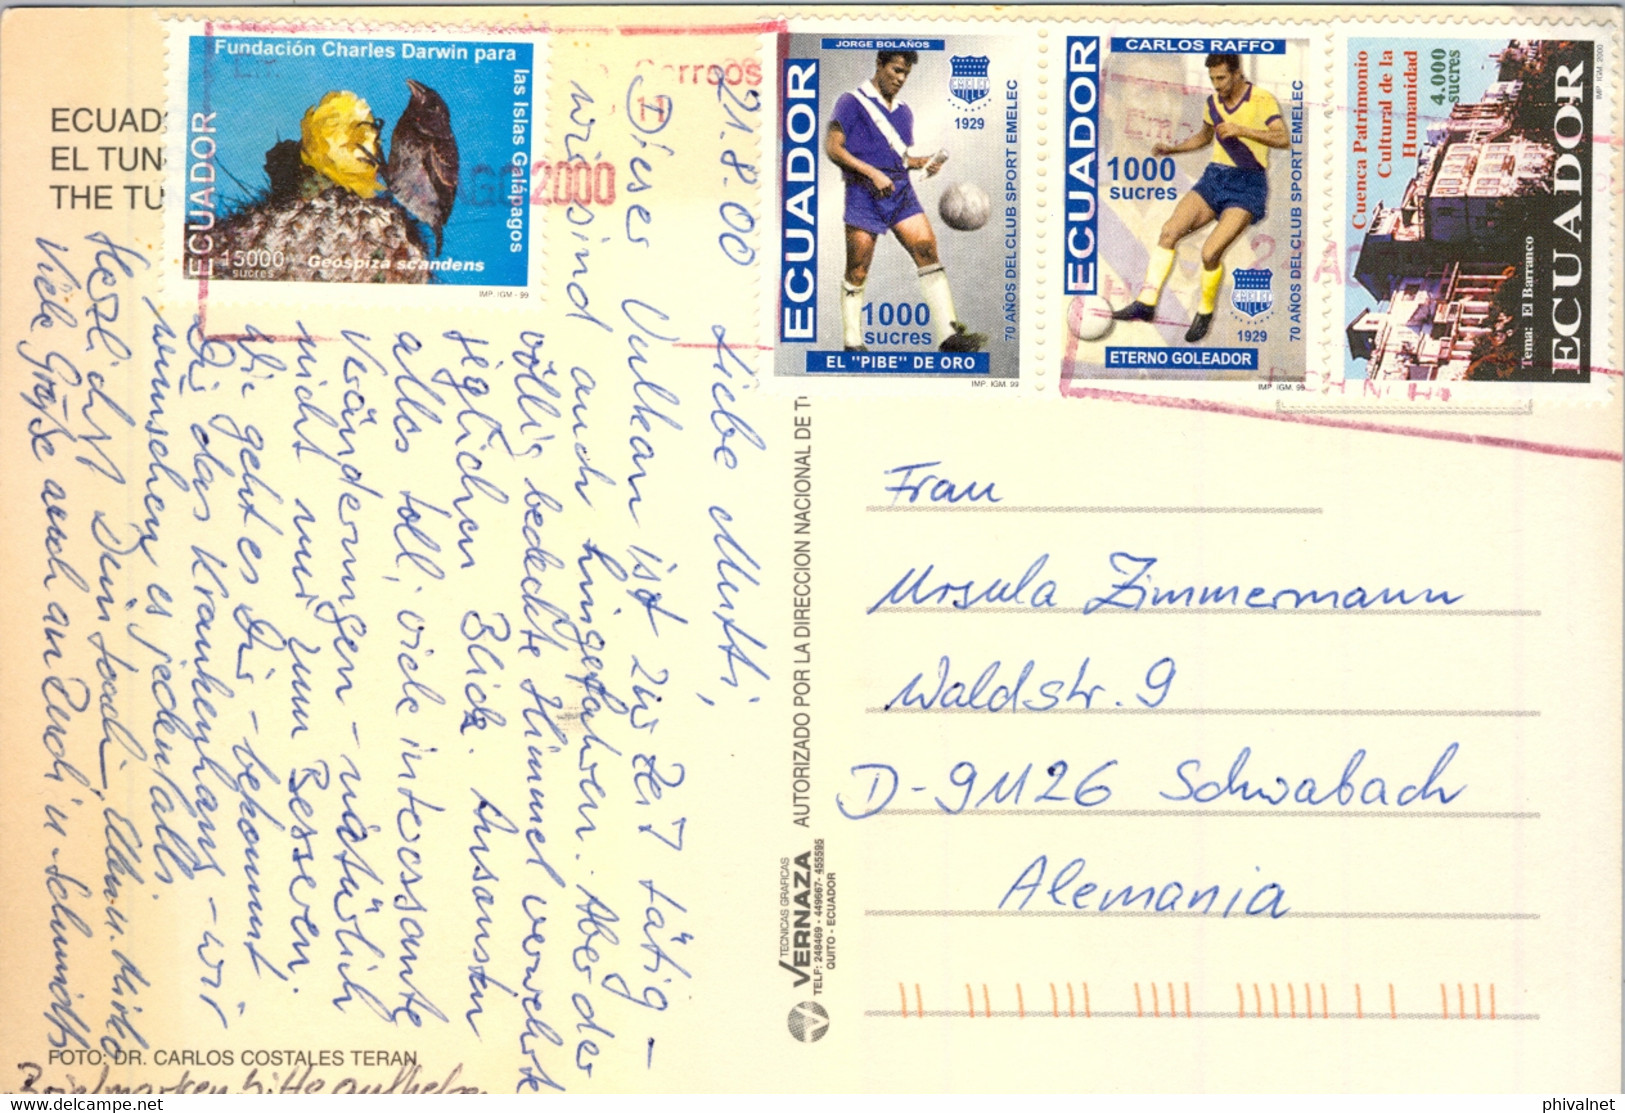 ECUAD
EL TUN
THE TU
Fundación Charles Darwin para
las Islas Galápagos
ECUADOR
15000
sucres
Geospiza scandens
IMP. IGM - 99
Correos
AGO 2000
JORGE BOLAÑOS
ECUADOR
EMELEC
1929
70 AÑOS DEL CLUB SPORT EMELEC
1000
sucres
EL "PIBE" DE ORO
IMP. IGM. 99
CARLOS RAFFO
ECUADOR
1000
sucres
70 AÑOS DEL CLUB SPORT EMELEC
EMELEC
1929
ETERNO GOLEADOR
IMP. IGM. 99
Cuenca Patrimonio
Cultural de la
Humanidad
4.000
sucres
Tema: El Barranco
ECUADOR
IMP. IGM. 2000
21.8.00
Liebe Mutti,
Dieser Vulkan ist zur Zeit tätig -
wir sind auch hingefahren. Aber der
völlig bedeckte Himmel verwehrte
jeglichen Blick. Ansonsten
alles toll, viele interessante
Veränderungen - natürlich
nicht nur zum Besseren.
Wie geht es Dir - bekommt
Dir das Krankenhaus - wir
wünschen es jedenfalls.
Herzlichst Dein
Viele Grüße auch an Rudi u. Schmidts
Briefmarken bitte aufheben
FOTO: DR. CARLOS COSTALES TERAN
AUTORIZADO POR LA DIRECCION NACIONAL DE
TECNICAS GRAFICAS
VERNAZA
TELF: 248469 - 449667- 455595
QUITO - ECUADOR
Frau
Ursula Zimmermann
Waldstr. 9
D-91126 Schwabach
Alemania
phivalnet